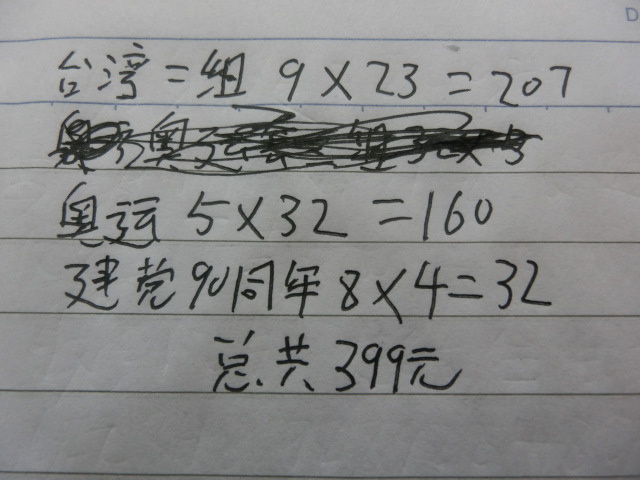 台湾二组 9×23=207
奥运 5×32=160
建党90周年 8×4=32
总共 399元